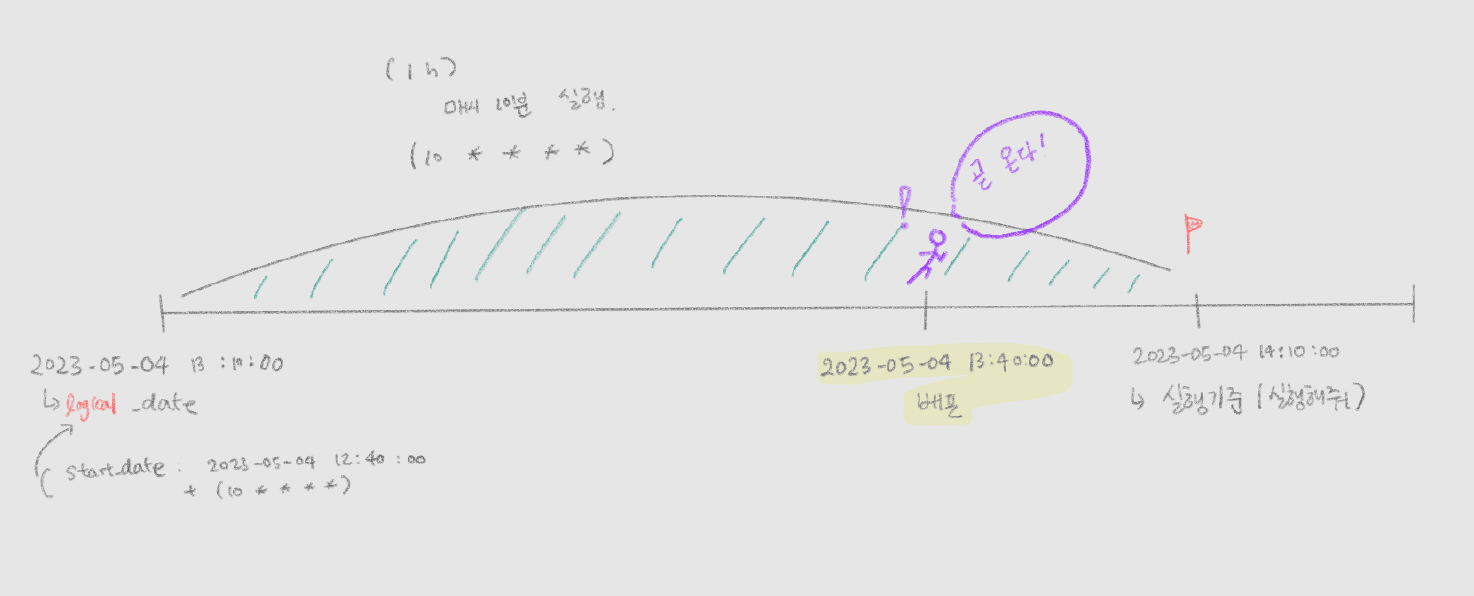 (1h)
매시 10분 실행.
(10 * * * *)
곧 온다!
!
2023-05-04 13:10:00
↳ logical_date
start_date : 2023-05-04 12:40:00
* (10 * * * *)
2023-05-04 13:40:00
배포
2023-05-04 14:10:00
↳ 실행기준 (실행해줘)